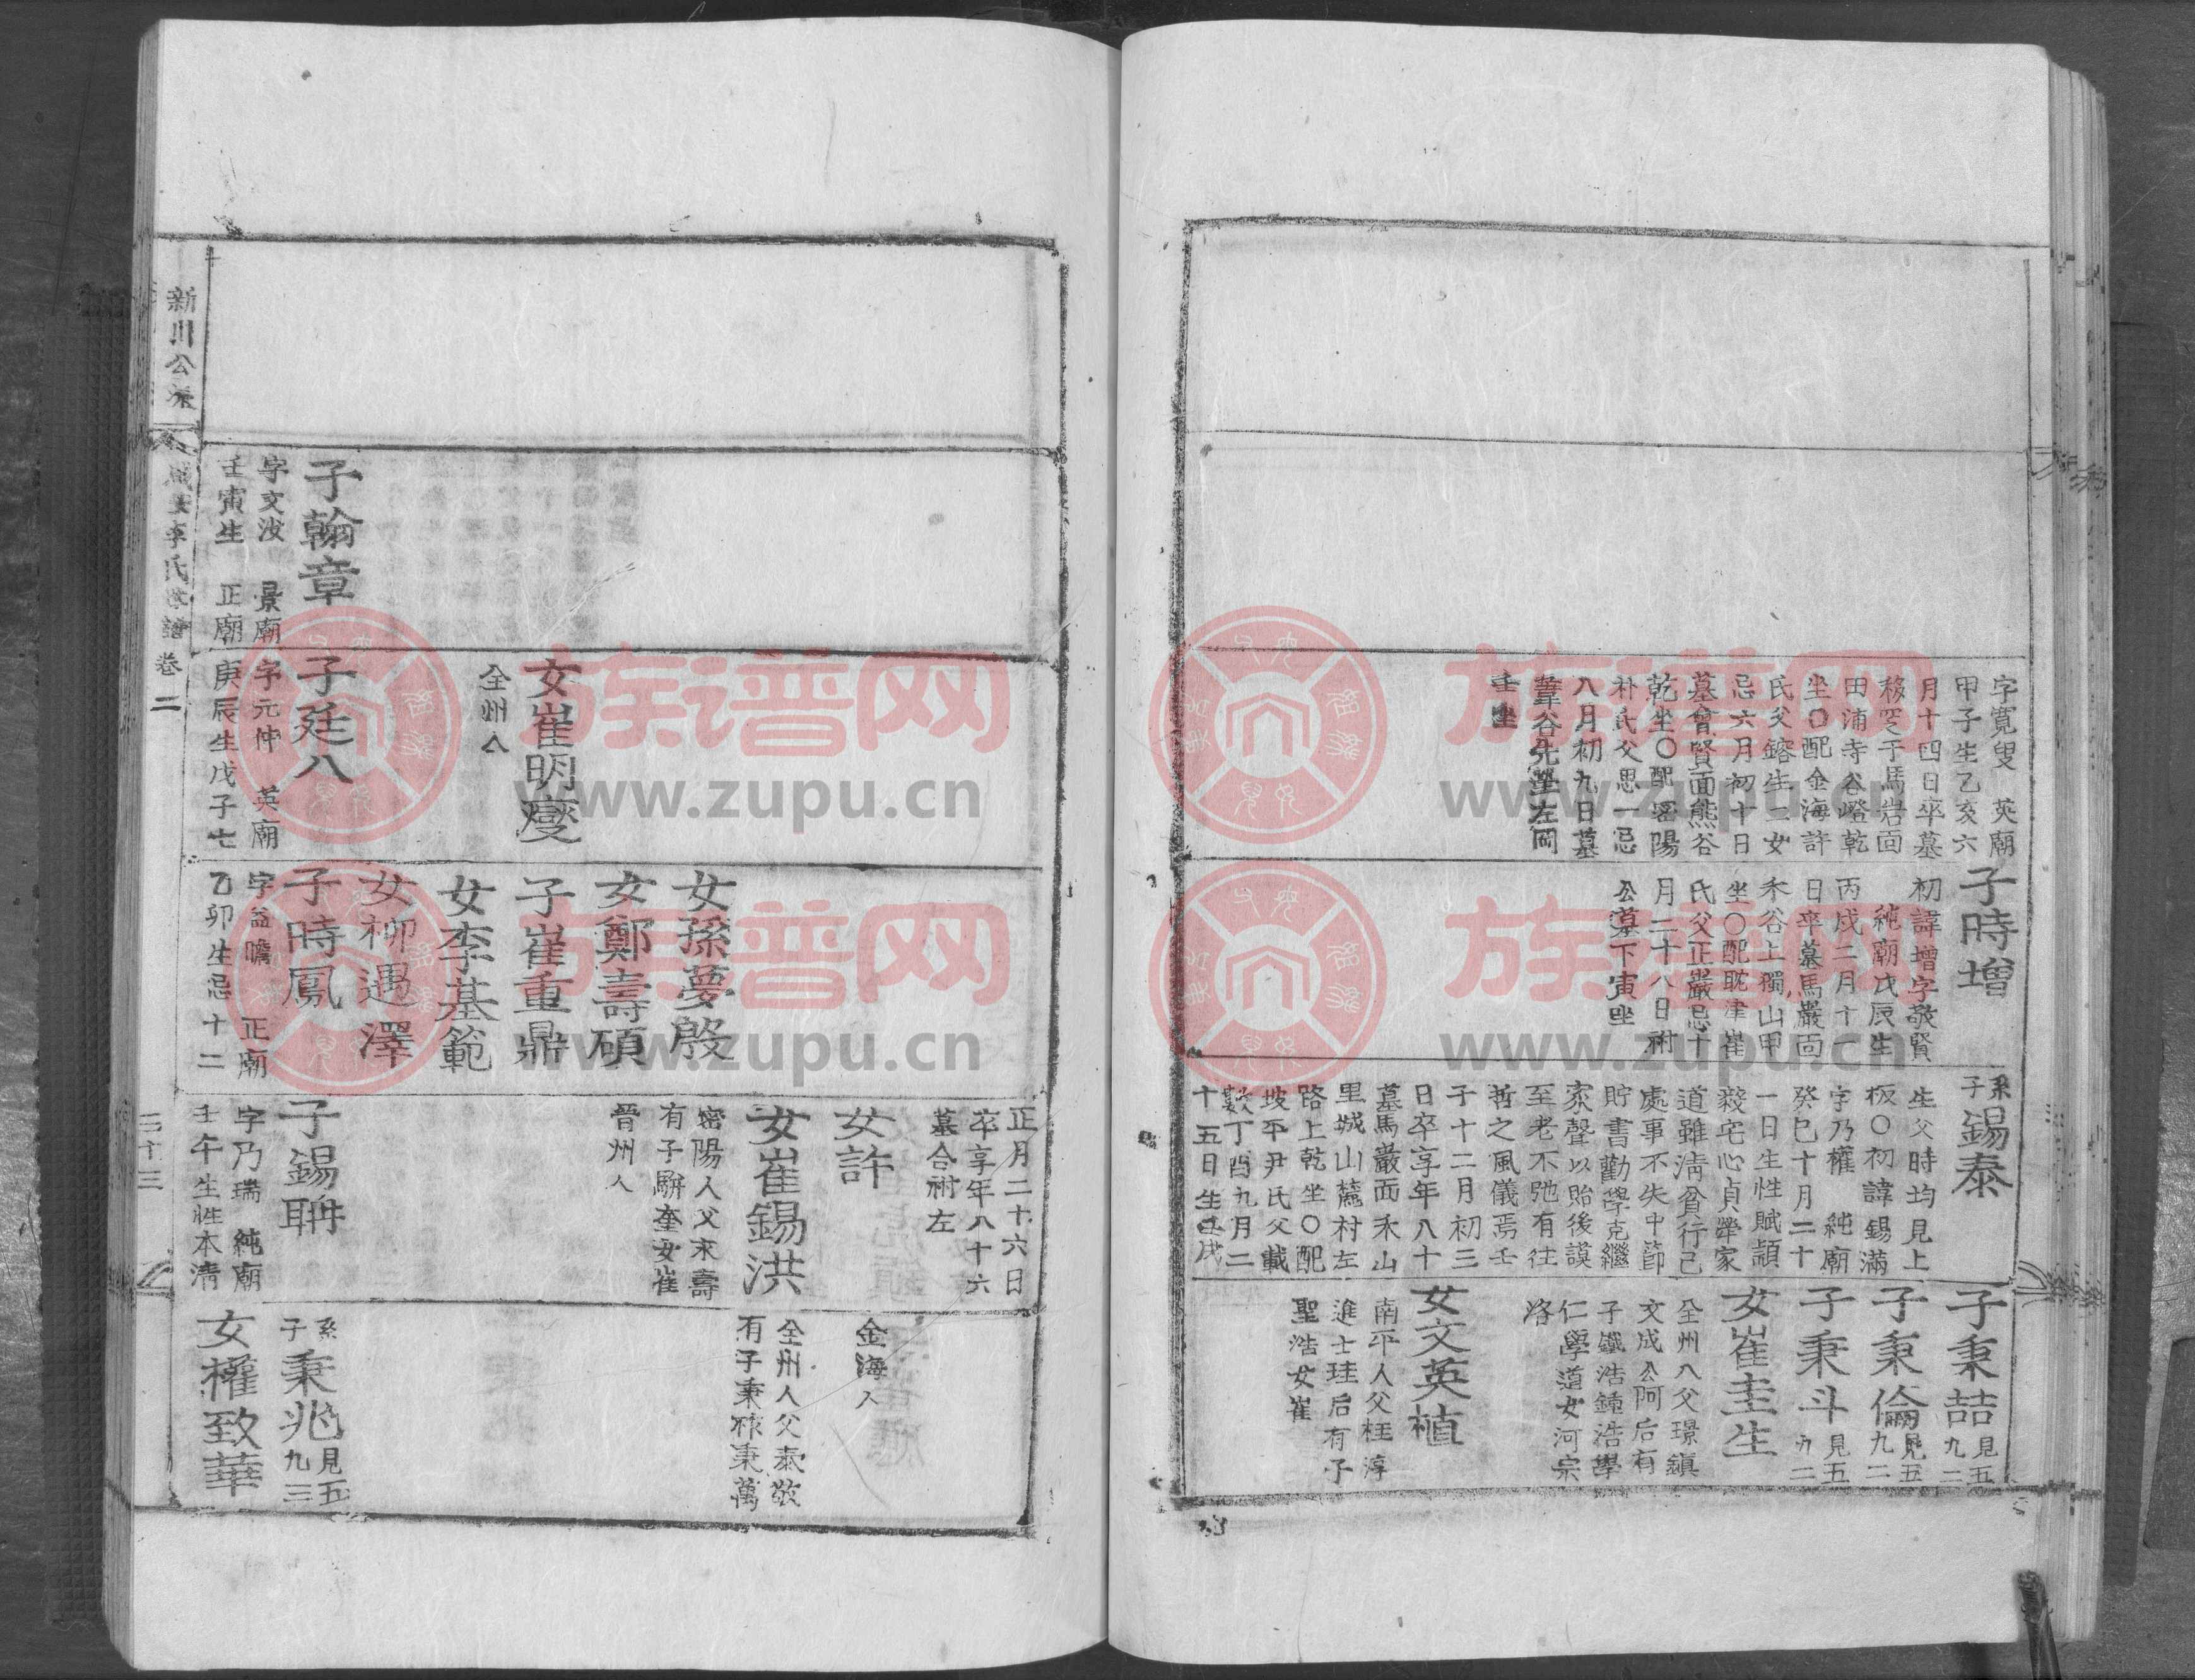 字寬叟　英廟
甲子生乙亥六
月十四日卒墓
移窆于馬岩面
田浦寺谷嶝乾
坐〇配金海許
氏父鎔生二女
忌六月初十日
墓會賢面熊谷
乾坐〇配密陽
朴氏父思一忌
八月初九日墓
葦谷先塋左岡
壬坐
子時增
初諱增字敬賢
純廟戊辰生
丙戌二月十一
日卒墓馬巖面
禾谷上獨山甲
坐〇配耽津崔
氏父正巖忌十
月二十八日祔
公墓下寅坐
系子錫泰
生父時均見上
板〇初諱錫滿
字乃權　純廟
癸巳十月二十
一日生性賦穎
毅宅心貞犖家
道雖淸貧行己
處事不失中節
貯書勸學克繼
家聲以貽後謨
至老不弛有往
哲之風儀焉壬
子十二月初三
日卒享年八十
墓馬巖面禾山
里城山麓村左
路上乾坐〇配
坡平尹氏父載
數丁酉九月二
十五日生己戌
子秉喆見五九二
子秉倫見五九二
子秉斗見五九二
女崔圭生
全州人父璟鎭
文成公阿后有
子鐵浩鍾浩學
仁學道女河宗
洛
女文英植
南平人父柱淳
進士珪后有子
聖浩女崔
新川公派
咸安李氏世譜 卷二
二十三
子翰章
字文汝　景廟
壬寅生　正廟
女崔明燮
全州人
子廷八
字元仲　英廟
庚辰生戊子七
女孫夢殷
女鄭壽碩
子崔重鼎
女李基範
女柳遇澤
子時鳳
字益瞻　正廟
乙卯生忌十二
正月二十六日
卒享年八十六
墓合祔左
女許
女崔錫洪
密陽人父末壽
有子駢奎女崔
晉州人
子錫聃
字乃瑞　純廟
壬午生性本淸
金海人
全州人父泰敬
有子秉祿秉萬
系子秉兆見五九三
女權致華
族谱网
www.zupu.cn
族谱网
www.zupu.cn
族谱网
www.zupu.cn
族谱网
www.zupu.cn